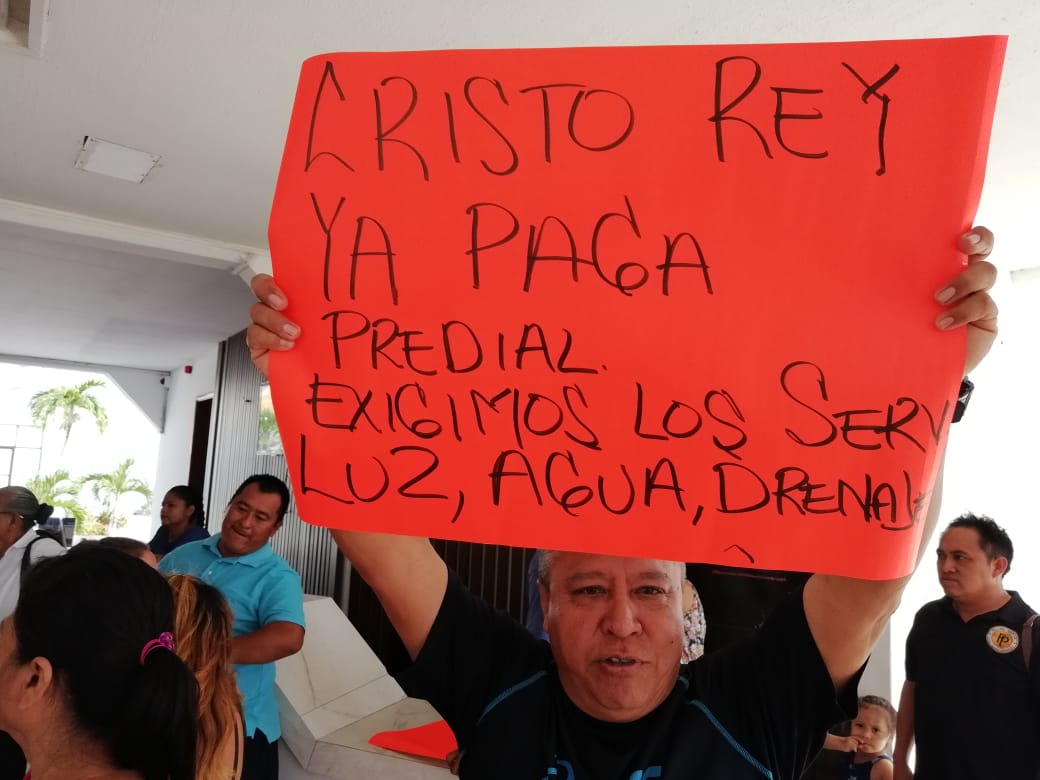 CRISTO REY
YA PAGA
PREDIAL.
EXIGIMOS LOS SERV
LUZ, AGUA, DRENAJE